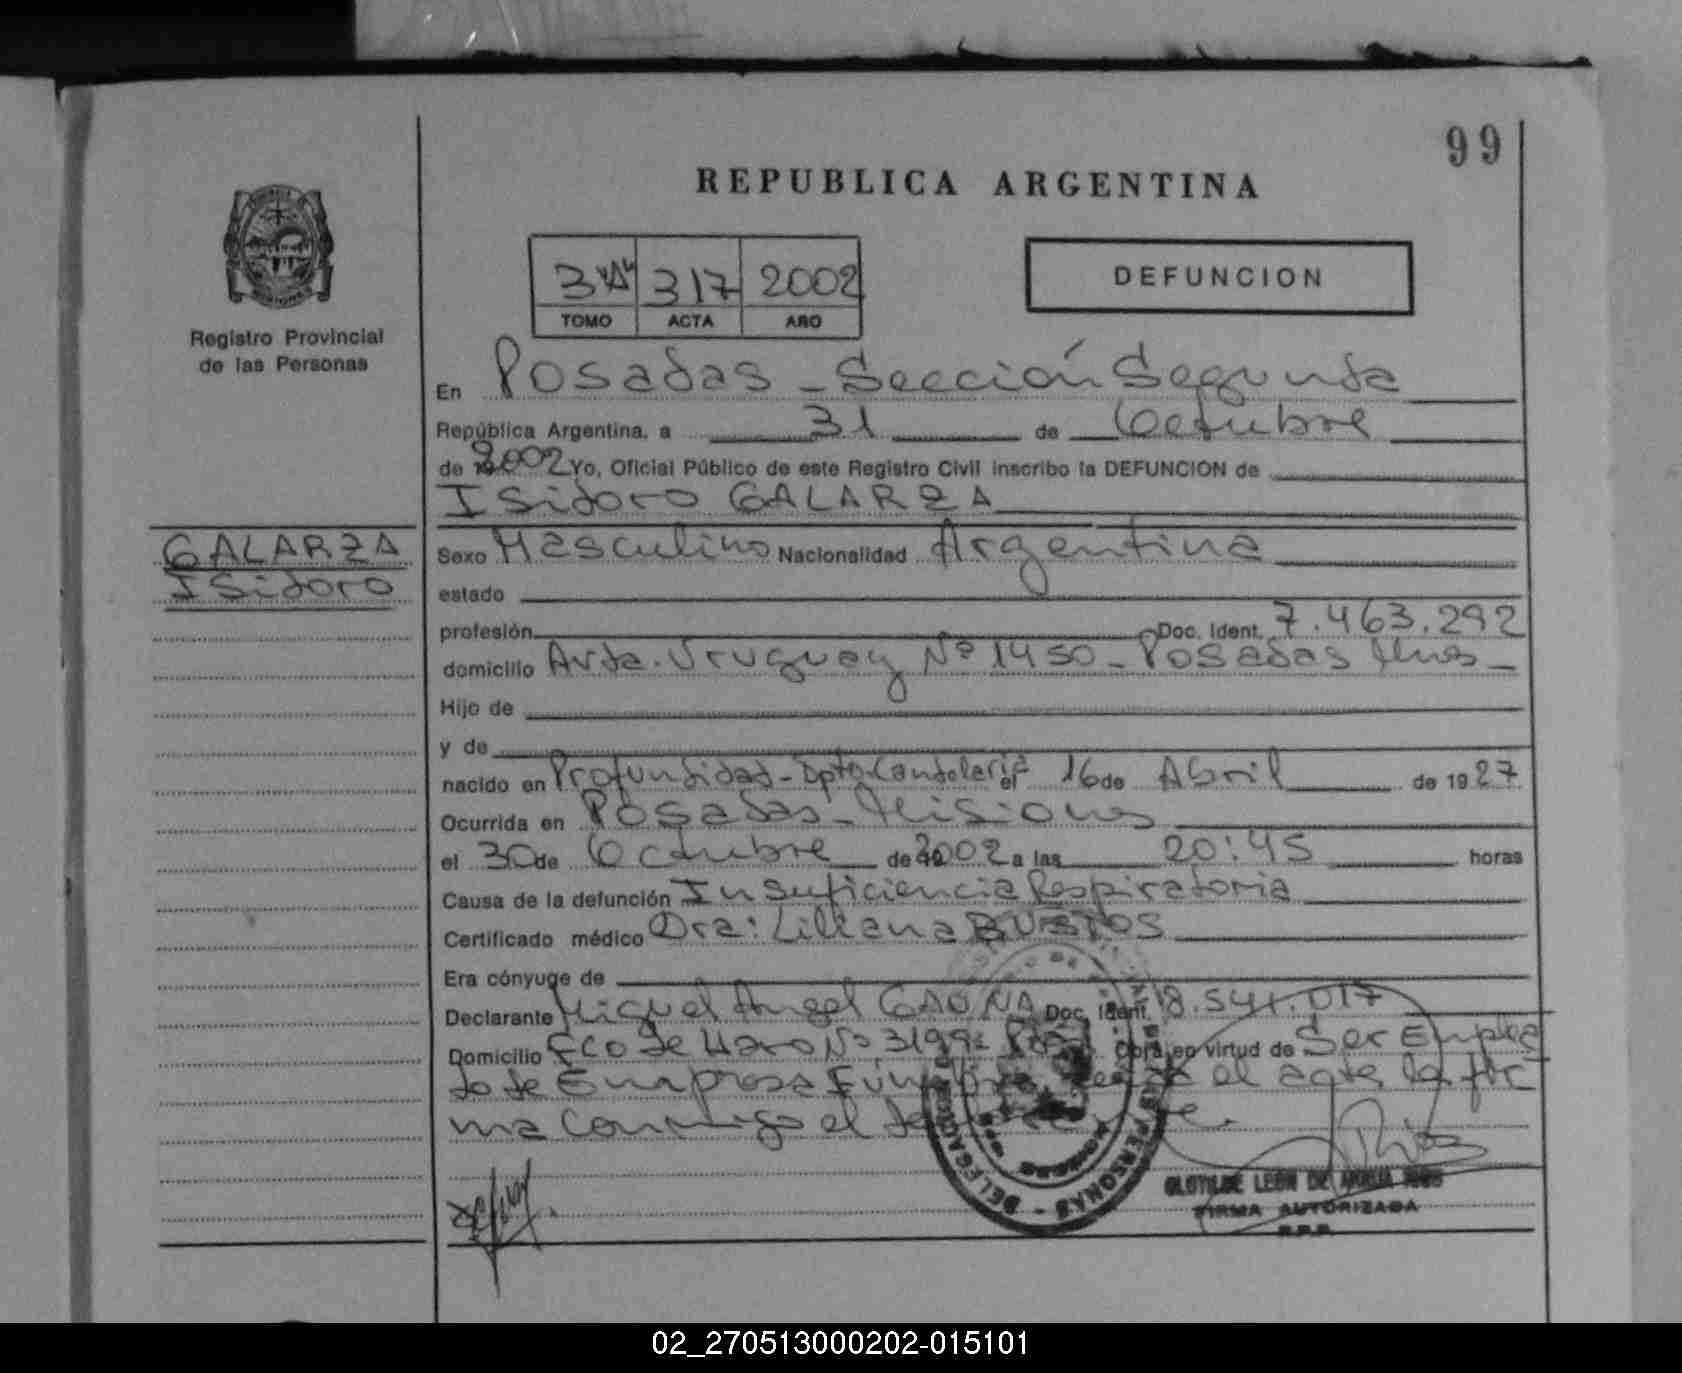 99
REPUBLICA ARGENTINA
3"A" 317 2002
TOMO ACTA AÑO
DEFUNCION
Registro Provincial
de las Personas
En Posadas - Sección Segunda
República Argentina, a 31 de Octubre
de 2002 Yo, Oficial Público de este Registro Civil inscribo la DEFUNCION de
Isidoro GALARZA
GALARZA
Isidoro
Sexo Masculino Nacionalidad Argentina
estado
profesión Doc. Ident. 7.463.292
domicilio Avda. Uruguay Nº 1450 - Posadas Mnes -
Hijo de
y de
nacido en Profundidad - Dpto. Candelaria el 16 de Abril de 1927
Ocurrida en Posadas - Misiones
el 30 de Octubre de 2002 a las 20:45 horas
Causa de la defunción Insuficiencia Respiratoria
Certificado médico Dra: Liliana BUSTOS
Era cónyuge de
Declarante Miguel Angel GAONA Doc. Ident. 18.541.017
Domicilio Fco de Haro Nº 3199 Obra en virtud de Ser Emplea
do de Empresa el acta la fir
ma conmigo el
CLOTILDE LEON DE
FIRMA AUTORIZADA
R.P.P.
DELEGACION PERSONAS
02_270513000202-015101